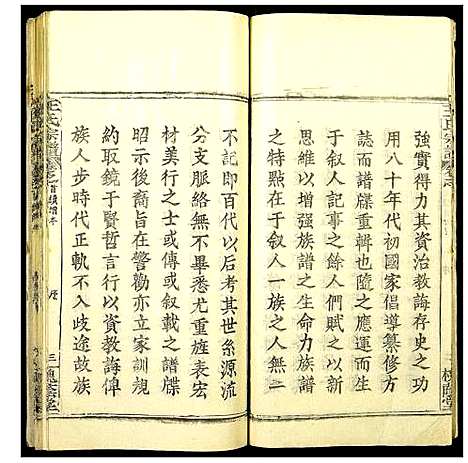 強實得力其資治教誨存史之功
用八十年代初國家倡導纂修方
誌而譜牒重輯也隨之應運而生
于叙人記事之餘人們賦之以新
思維以增强族譜之生命力族譜
之特點在于叙人一族之人無一
不記即百代以后考其世系源流
分支脈絡無不畢悉尤重旌表宏
材美行之士或傳或叙載之譜牒
昭示後裔旨在警勸亦立家訓規
約取鏡于賢哲言行以資教誨俾
族人步時代正軌不入歧途故族
王氏宗譜
三